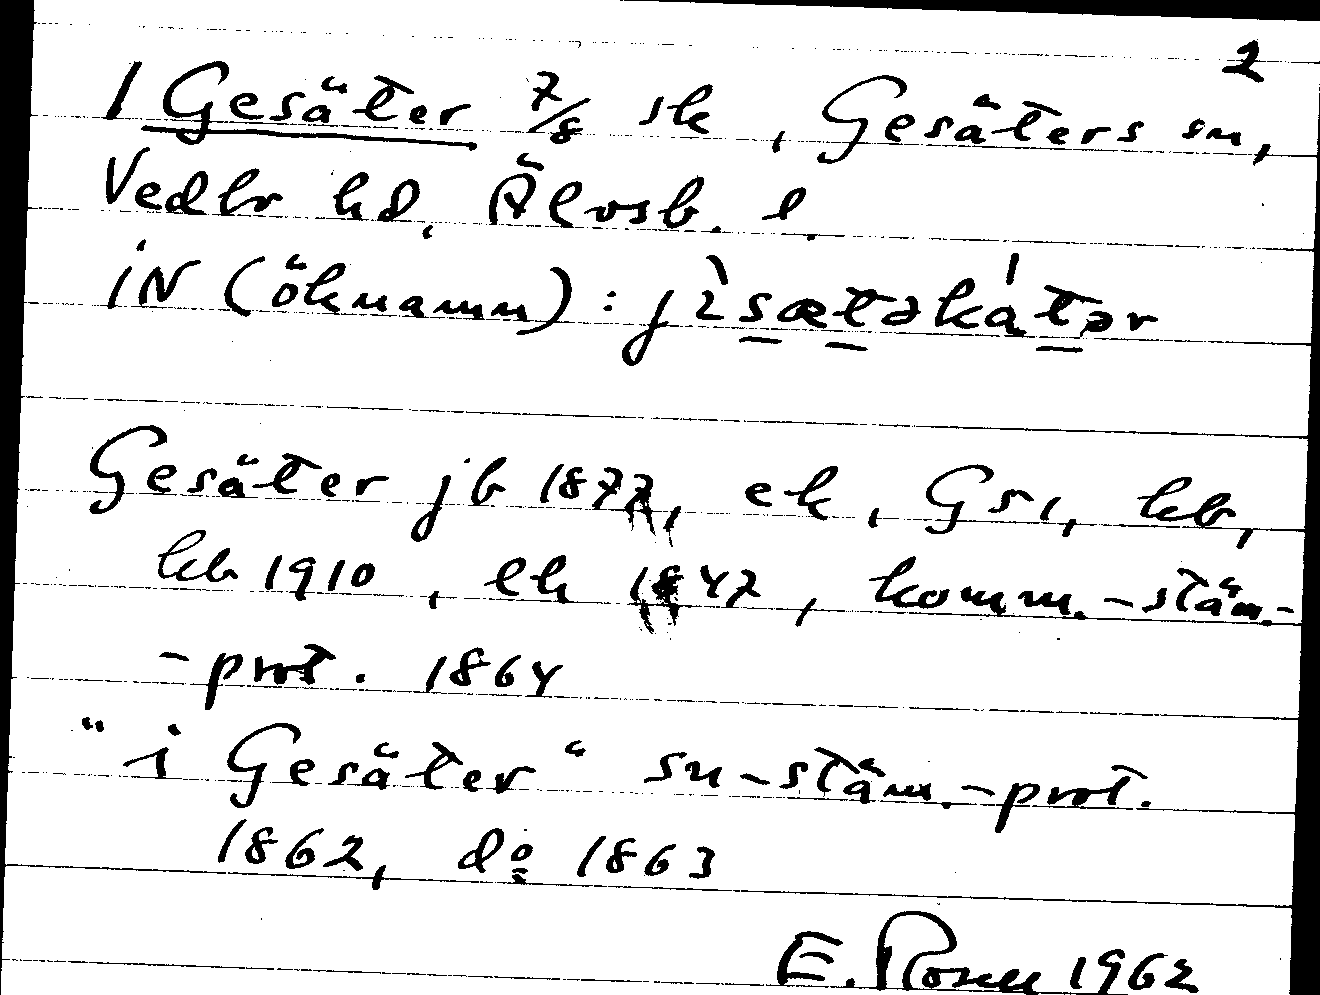 2
1 Gesäter 7/8 sk, Gesäters sn,
Vedbo hd, Älvsb. l.
iN (öknamn): jìsætəkátər
Gesäter jb 1877, ek, Gs1, kb,
lkb 1910, ek 1847, komm.-stäm.-
-prot. 1864
"i Gesäter" sn-stäm.-prot.
1862, do 1863
E. Rosell 1962